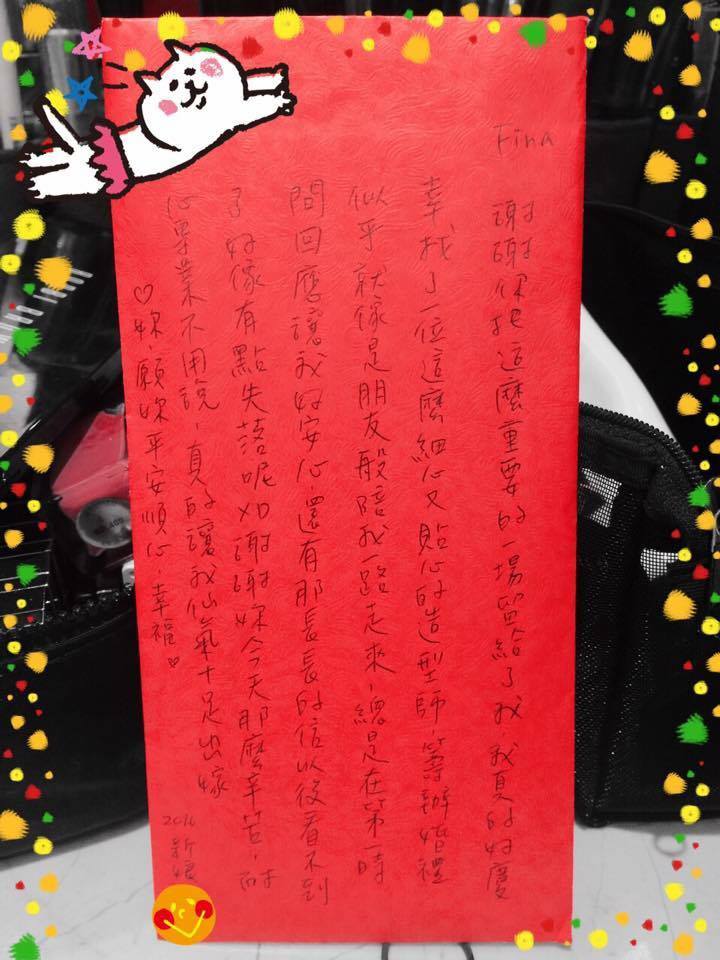 Fina
謝謝你把這麼重要的一場留給了我，我真的好慶
幸找了一位這麼細心又貼心的造型師，籌辦婚禮
似乎就像是朋友般陪我一路走來，總是在第一時
間回應讓我好安心還有那長長的信以後看不到
了好像有點失落呢XD謝謝妳今天那麼辛苦，耐
心專業不用說，真的讓我仙氣十足出嫁
♡妳，願妳平安順心，幸福♡
2016 新娘